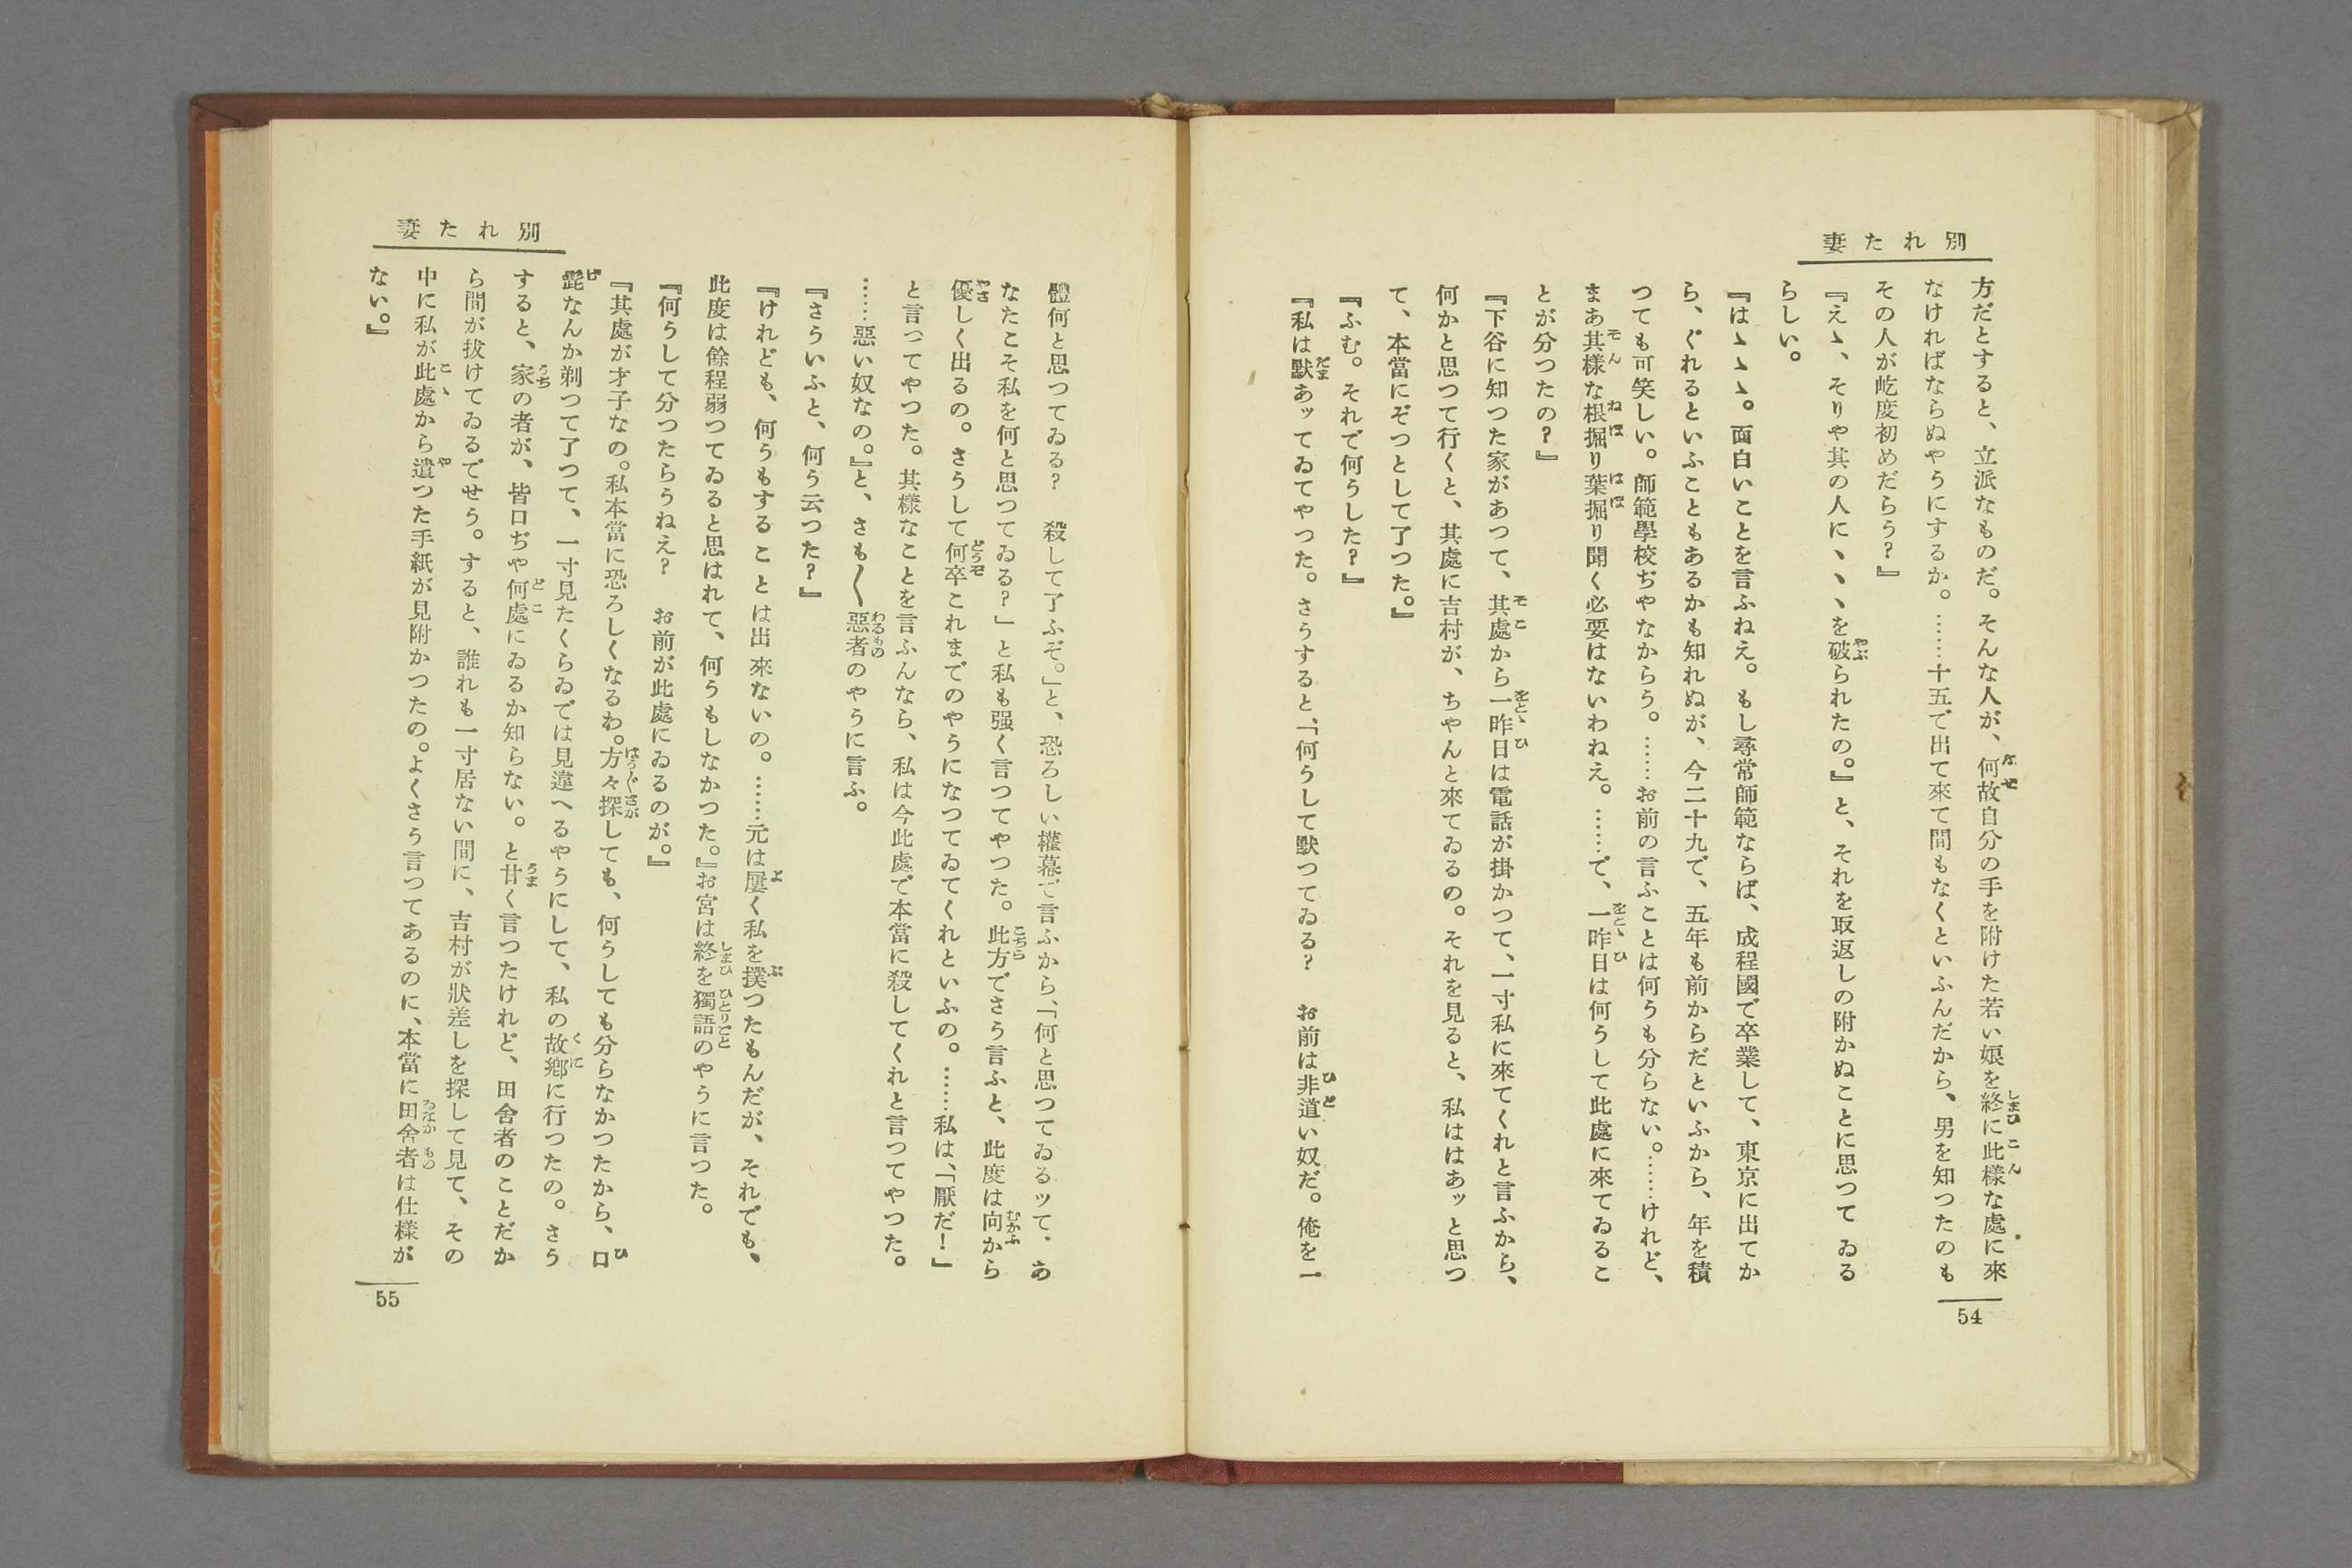 別れたる妻
方だとすると、立派なものだ。そんな人が、何故自分の手を附けた若い娘を終に此樣な處に來
なければならぬやうにするか。……十五で出て來て間もなくといふんだから、男を知つたのも
その人が屹度初めだらう？』
『えゝ、そりや其の人に、、、を破られたの。』と、それを取返しの附かぬことに思つてゐる
らしい。
『はゝゝゝ。面白いことを言ふねえ。もし尋常師範ならば、成程國で卒業して、東京に出てか
ら、ぐれるといふこともあるかも知れぬが、今二十九で、五年も前からだといふから、年を積
つても可笑しい。師範學校ぢやなからう。……お前の言ふことは何うも分らない。……けれど、
まあ其樣な根掘り葉掘り聞く必要はないわねえ。……で、一昨日は何うして此處に來てゐるこ
とが分つたの？』
『下谷に知つた家があつて、其處から一昨日は電話が掛かつて、一寸私に來てくれと言ふから、
何かと思つて行くと、其處に吉村が、ちやんと來てゐるの。それを見ると、私ははあッと思つ
て、本當にぞつとして了つた。』
『ふむ。それで何うした？』
『私は默あッてゐてやつた。さうすると、「何うして默つてゐる？　お前は非道い奴だ。俺を一
54
別れた妻
體何と思つてゐる？　殺して了ふぞ。」と、恐ろしい權幕で言ふから、「何と思つてゐるッて、あ
なたこそ私を何と思つてゐる？」と私も强く言つてやつた。此方でさう言ふと、此度は向から
優しく出るの。さうして何卒これまでのやうになつてゐてくれといふの。……私は、「厭だ！」
と言つてやつた。其樣なことを言ふんなら、私は今此處で本當に殺してくれと言つてやつた。
……惡い奴なの。』と、さも〱惡者のやうに言ふ。
『さういふと、何う云つた？』
『けれども、何うもすることは出來ないの。……元は屢く私を撲つたもんだが、それでも、
此度は餘程弱つてゐると思はれて、何うもしなかつた。』お宮は終を獨語のやうに言つた。
『何うして分つたらうねえ？　お前が此處にゐるのが。』
『其處が才子なの。私本當に恐ろしくなるわ。方々探しても、何うしても分らなかつたから、口
髭なんか剃つて了つて、一寸見たくらゐでは見違へるやうにして、私の故鄕に行つたの。さう
すると、家の者が、皆口ぢや何處にゐるか知らない。と甘く言つたけれど、田舍者のことだか
ら間が拔けてゐるでせう。すると、誰れも一寸居ない間に、吉村が狀差しを探して見て、その
中に私が此處から遣つた手紙が見附かつたの。よくさう言つてあるのに、本當に田舍者は仕樣が
ない。』
55